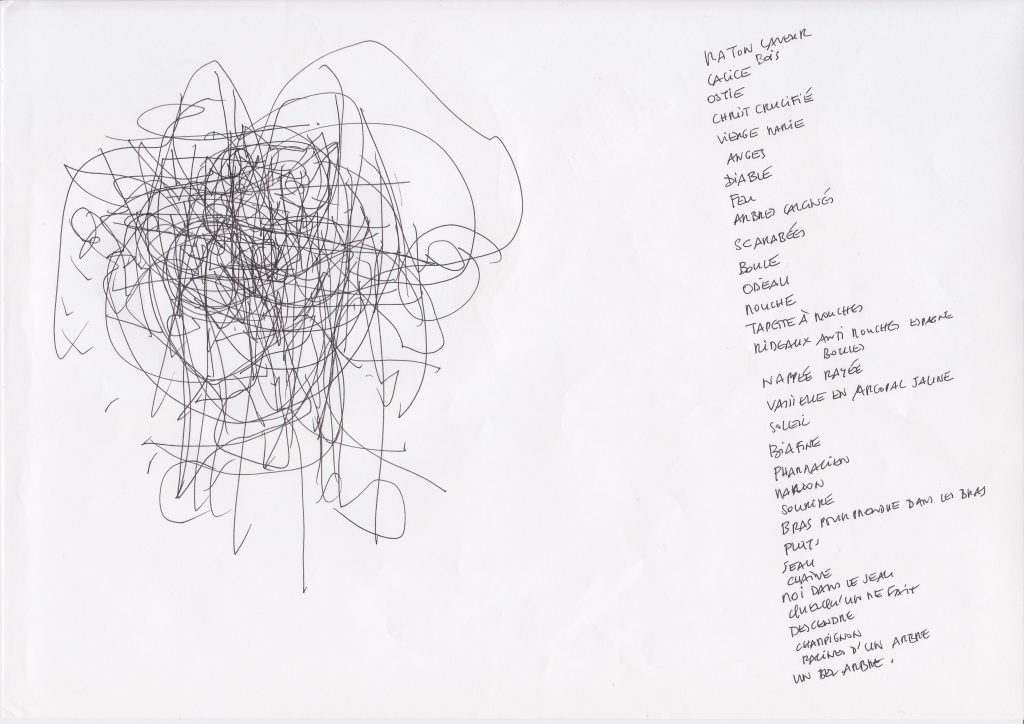 RATON LAVEUR
CALICE BOIS
OSTIE
CHRIST CRUCIFIÉ
VIERGE MARIE
ANGES
DIABLE
FEU
ARBRES CALCINÉS
SCARABÉES
BOULE
MOUCHE
TAPETTE À MOUCHES
RIDEAUX ANTI MOUCHES ESPAGNE
BOULES
NAPPÉE RAYÉE
VAISSELLE EN ARCOPAL JAUNE
SOLEIL
BIAFINE
PHARMACIEN
MARRON
SOURIRE
BRAS POUR PRENDRE DANS LES BRAS
PUITS
SEAU
CHAÎNE
MOI DANS LE SEAU
QUELQU'UN ME FAIT
DESCENDRE
CHAMPIGNON
RACINES D'UN ARBRE
UN BEL ARBRE.